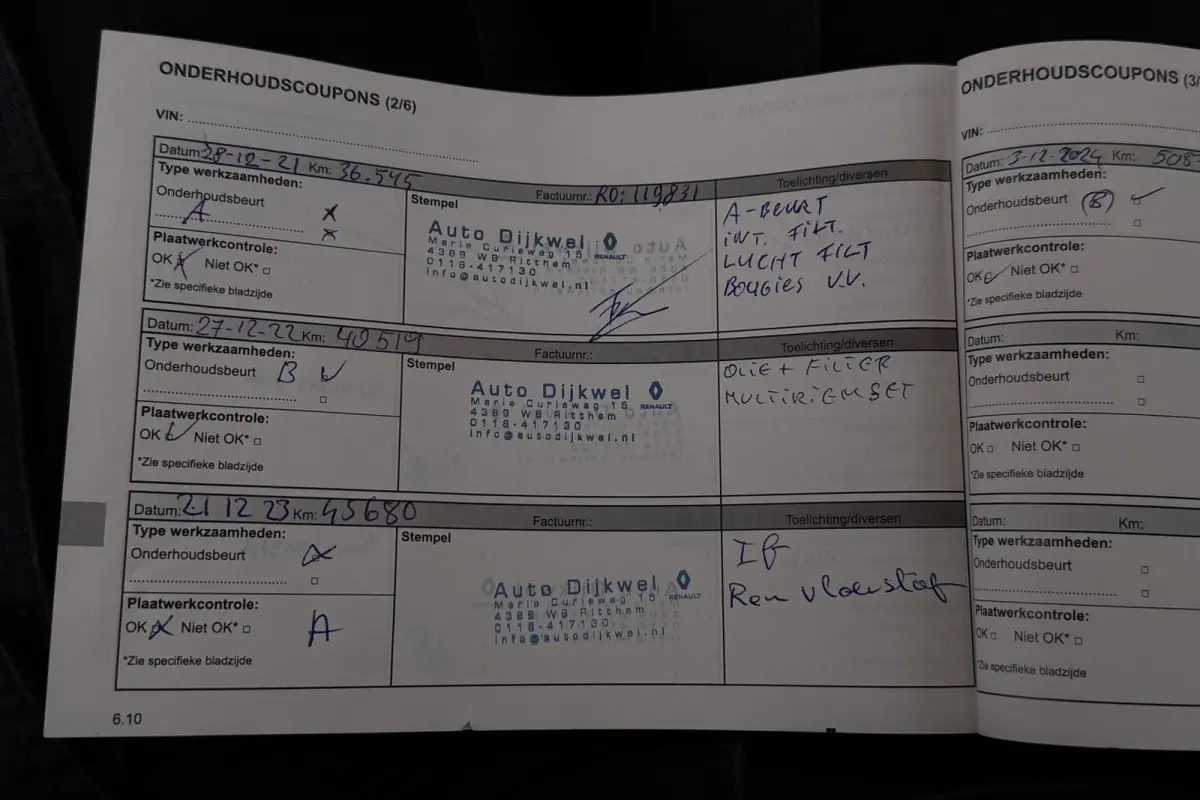 ONDERHOUDSCOUPONS (2/6)
VIN:
Datum: 28-12-21 Km: 36.545
Factuurnr.: RO: 119831
Toelichting/diversen
Type werkzaamheden:
Onderhoudsbeurt
A
Plaatwerkcontrole:
OK Niet OK*
*Zie specifieke bladzijde
Stempel
Auto Dijkwel
RENAULT
Marie Curieweg 15
4389 WB Ritthem
0118-417130
info@autodijkwel.nl
A-BEURT
INT. FILT.
LUCHT FILT
BOUGIES V.V.
Datum: 27-12-22 Km: 40519
Factuurnr.:
Toelichting/diversen
Type werkzaamheden:
Onderhoudsbeurt B
Plaatwerkcontrole:
OK Niet OK*
*Zie specifieke bladzijde
Stempel
Auto Dijkwel
RENAULT
Marie Curieweg 15
4389 WB Ritthem
0118-417130
info@autodijkwel.nl
OLIE + FILTER
MULTIRIEMSET
Datum: 21 12 23 Km: 45680
Factuurnr.:
Toelichting/diversen
Type werkzaamheden:
Onderhoudsbeurt
Plaatwerkcontrole:
OK Niet OK*
A
*Zie specifieke bladzijde
Stempel
Auto Dijkwel
RENAULT
Marie Curieweg 15
4389 WB Ritthem
0118-417130
info@autodijkwel.nl
Rem vloeistof
6.10
ONDERHOUDSCOUPONS (3/
VIN:
Datum: 3-12-2024 Km: 5083
Type werkzaamheden:
Onderhoudsbeurt (B)
Plaatwerkcontrole:
OK Niet OK*
*Zie specifieke bladzijde
Datum: Km:
Type werkzaamheden:
Onderhoudsbeurt
Plaatwerkcontrole:
OK Niet OK*
*Zie specifieke bladzijde
Datum: Km:
Type werkzaamheden:
Onderhoudsbeurt
Plaatwerkcontrole:
OK Niet OK*
*Zie specifieke bladzijde